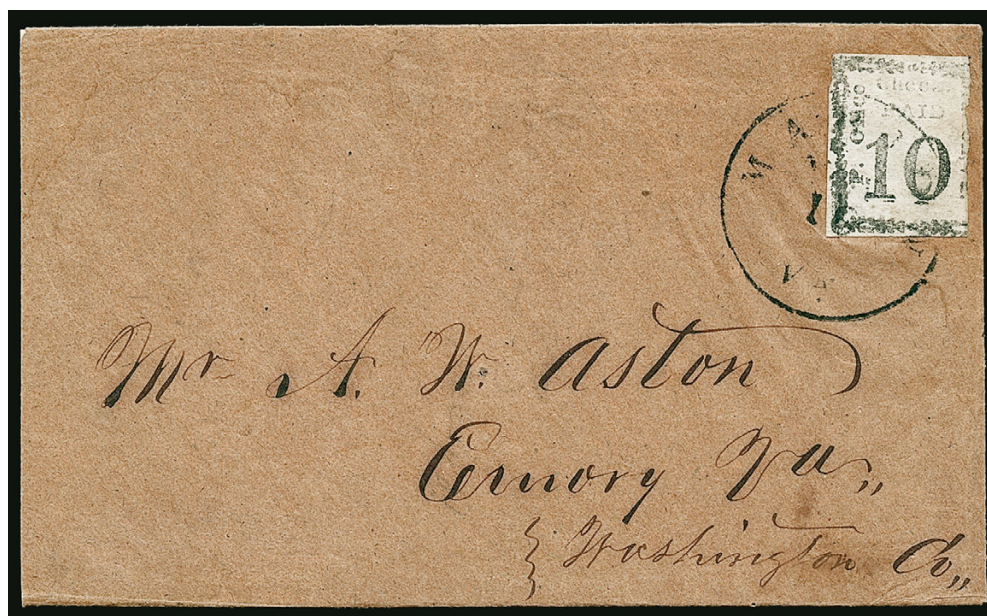 P. Office
PAID
10
VA
Mr A. W. Aston
Emory Va,,
Washington Co,,